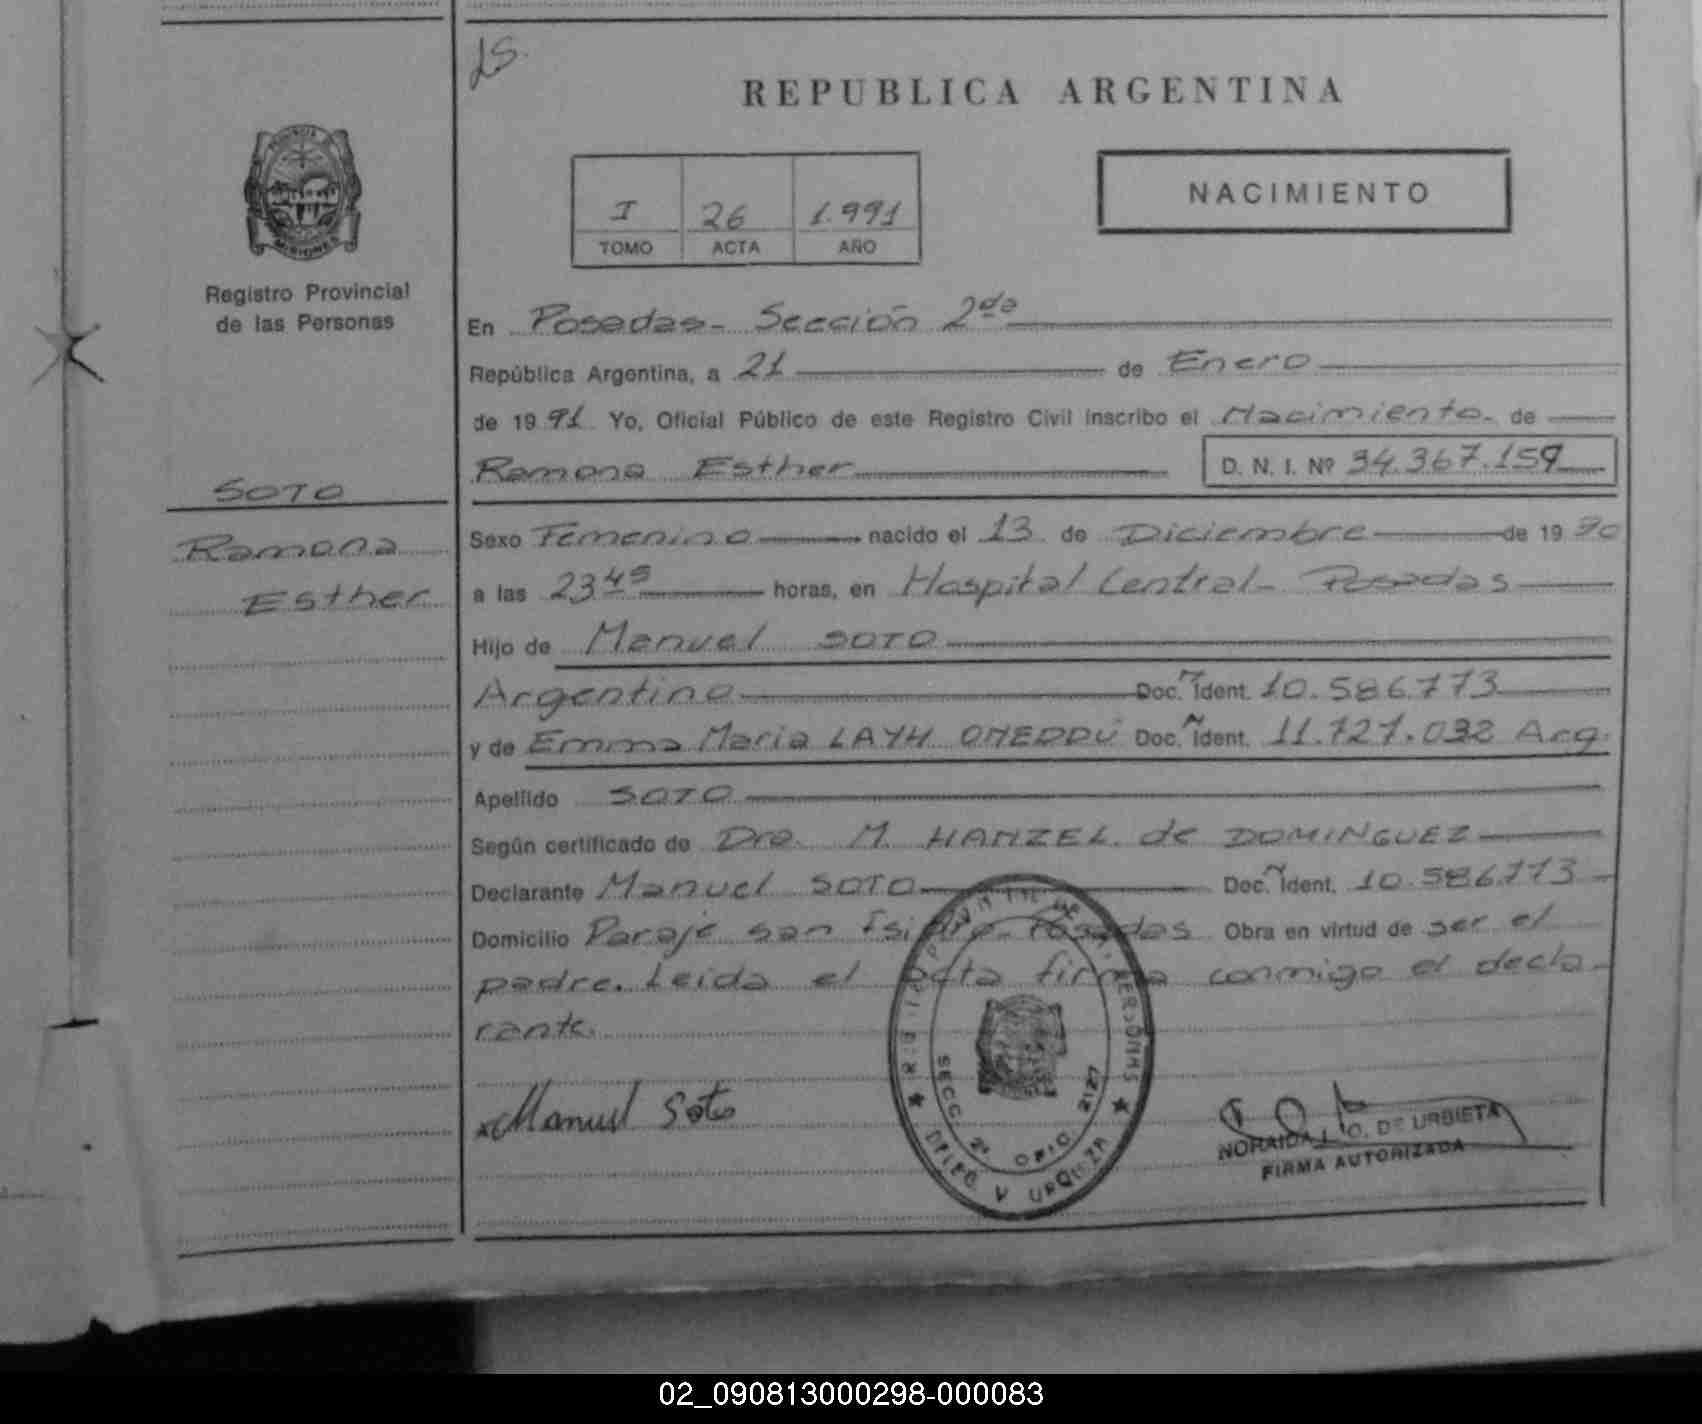 LS.
REPUBLICA ARGENTINA
PROVINCIA DE
MISIONES
I 26 1.991
TOMO ACTA AÑO
NACIMIENTO
Registro Provincial
de las Personas
En Posadas - Sección 2da
República Argentina, a 21 de Enero
de 1991 Yo, Oficial Público de este Registro Civil inscribo el Nacimiento de
Ramona Esther D. N. I. Nº 34.367.159
SOTO
Ramona
Esther
Sexo Femenino nacido el 13 de Diciembre de 1990
a las 23 45 horas, en Hospital Central - Posadas
Hijo de Manuel SOTO
Argentino Doc. Ident. 10.586.773
y de Emma Maria LAYH Doc. Ident. 11.727.032 Arg.
Apellido SOTO
Según certificado de Dra. M. HANZEL de DOMINGUEZ
Declarante Manuel SOTO Doc. Ident. 10.586.773
Domicilio Paraje San Isidro - Posadas Obra en virtud de ser el
padre. Leida el acta firma conmigo el decla-
rante.
Manuel Soto
PERSONAS
SECC. 2ª OFIC. 2127
URQUIZA
NORAIDA L. O. DE URBIETA
FIRMA AUTORIZADA
02_090813000298-000083